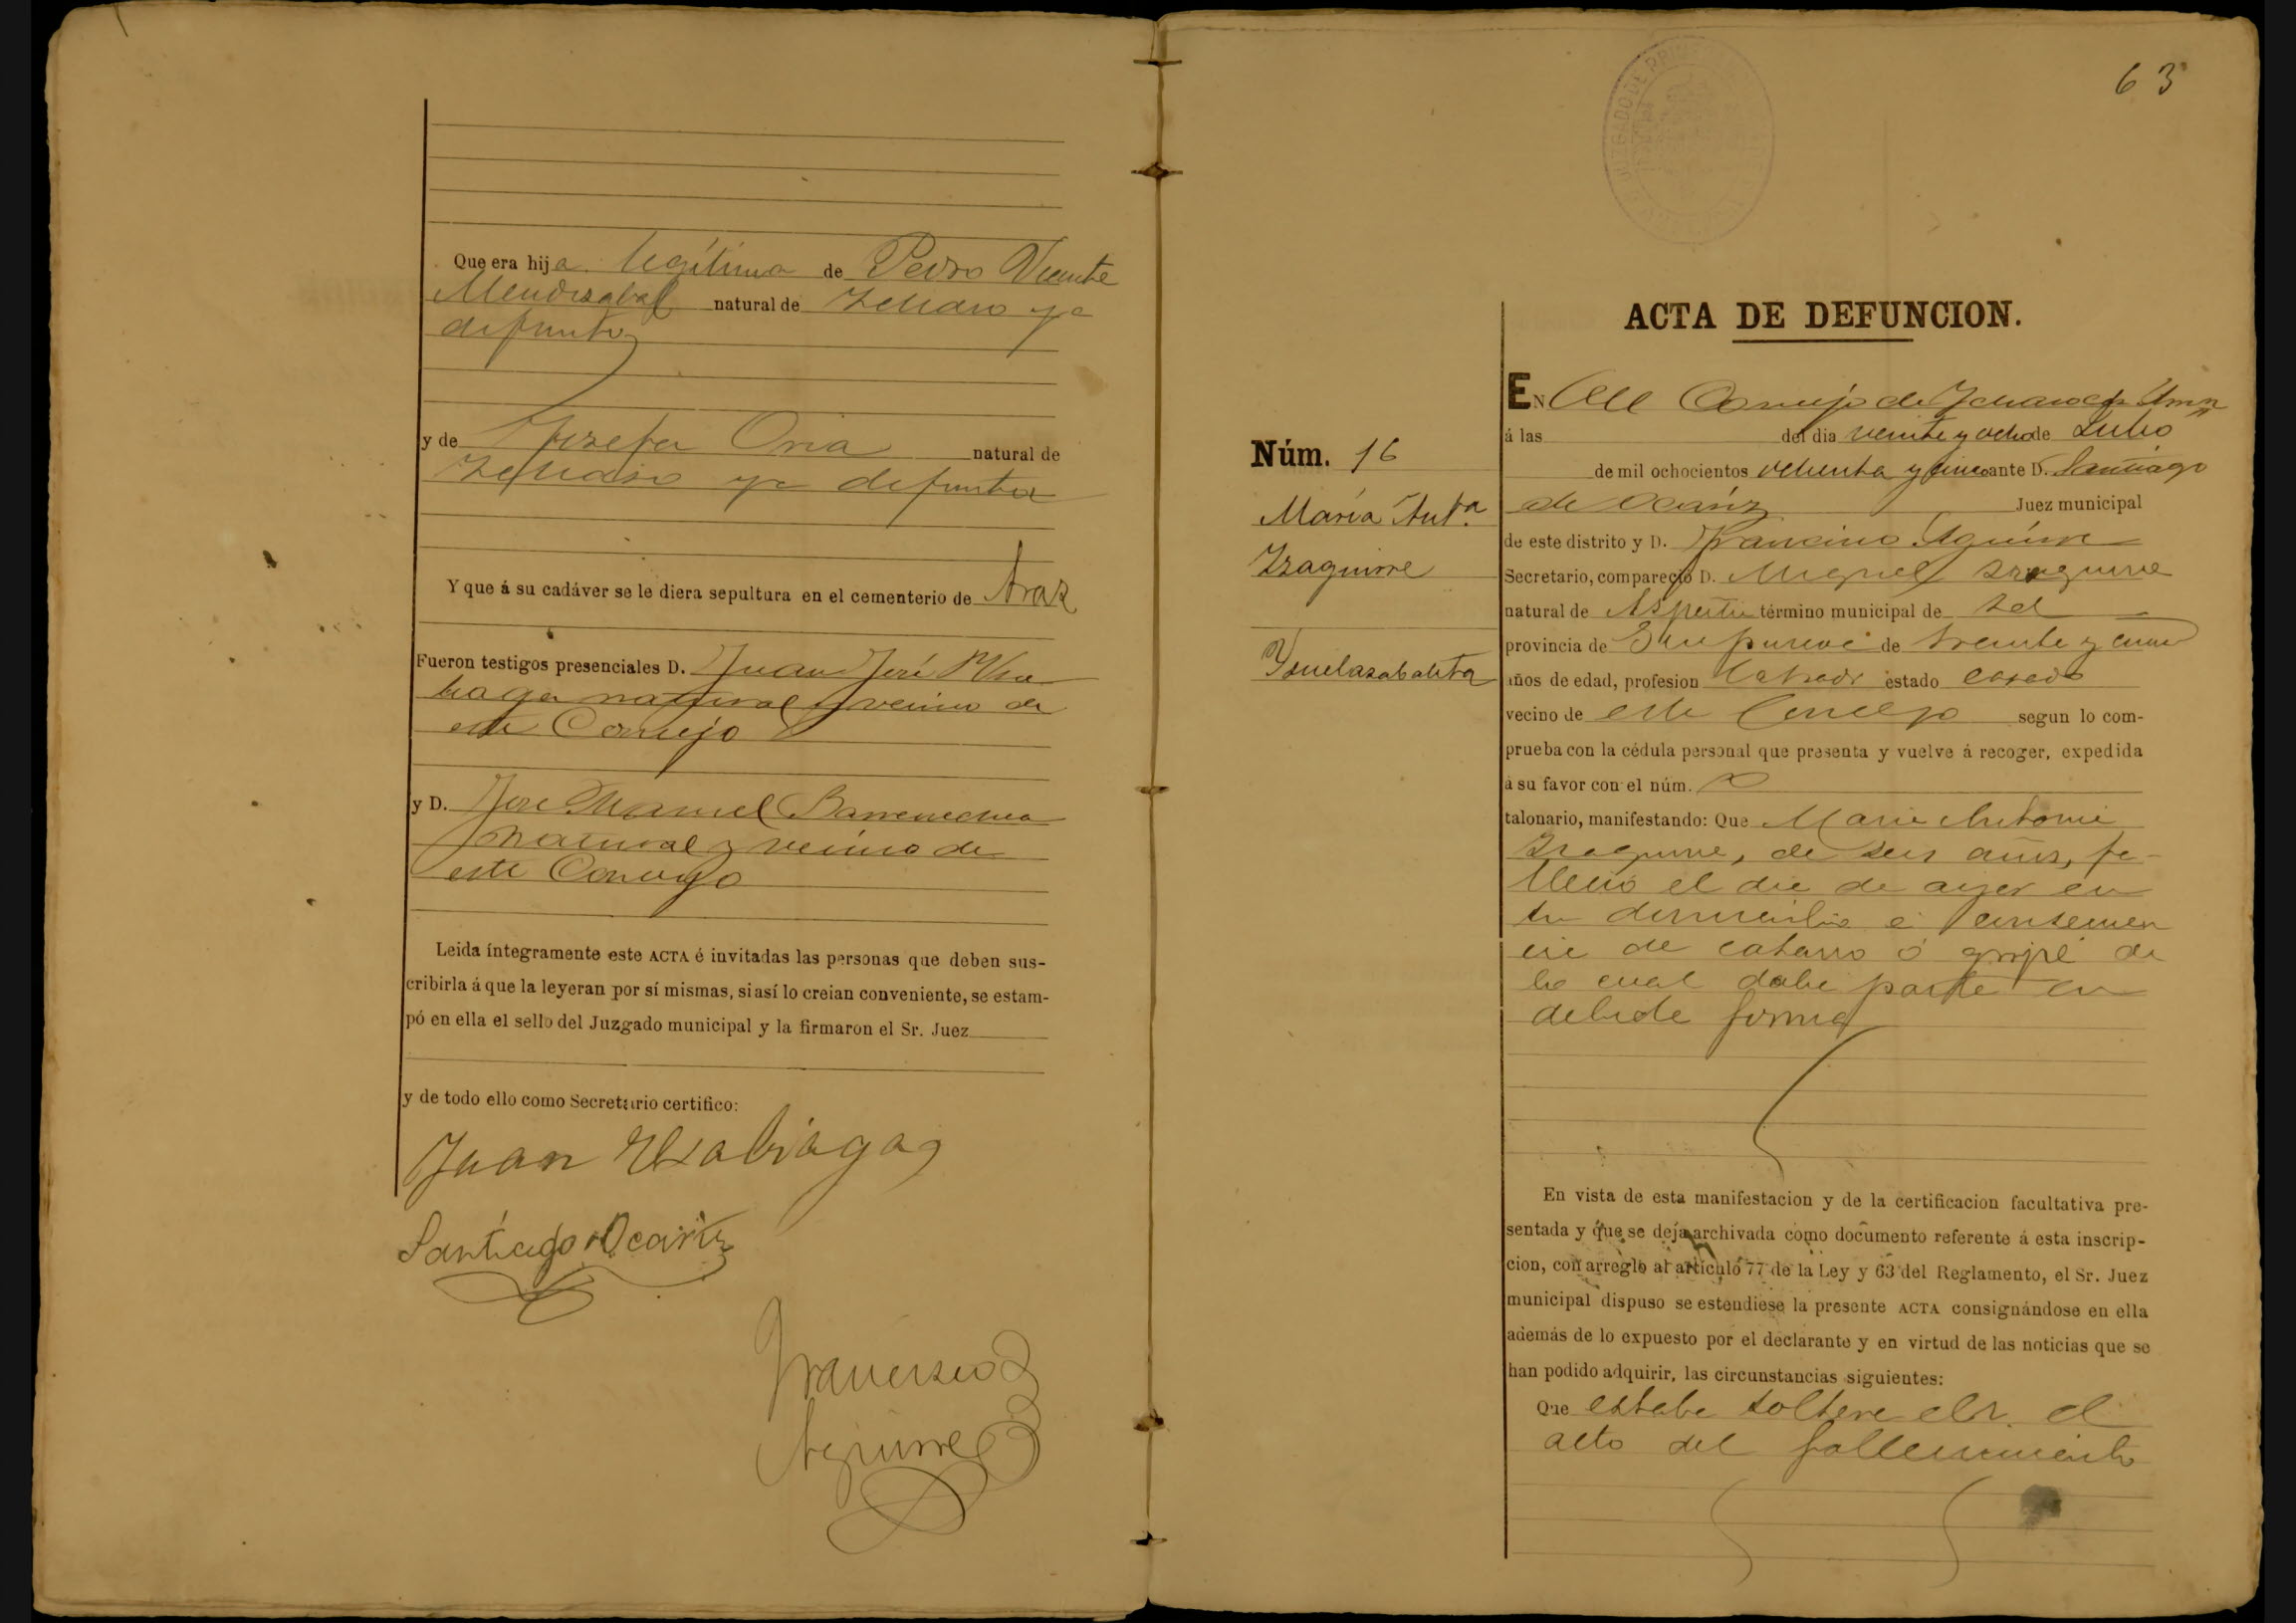 Que era hija legítima de Pedro Vicente
Mendizabal natural de Ichaso ya
difunto
y de Josefa Oria natural de
Ichaso ya difunta
Y que á su cadáver se le diera sepultura en el cementerio de
Fueron testigos presenciales D. Juan José
natural y vecino de
este Concejo
y D. José Manuel Barrenechea
natural y vecino de
este Concejo
Leida íntegramente este ACTA é invitadas las personas que deben sus-
cribirla á que la leyeran por sí mismas, si así lo creian conveniente, se estam-
pó en ella el sello del Juzgado municipal y la firmaron el Sr. Juez
y de todo ello como Secretario certifico:
Juan
Santiago Ocariz
Francisco
Aguirre
63
ACTA DE DEFUNCION.
Núm. 16
María Antª
Yzaguirre
EN Concejo de Ichaso
á las del dia veinte y ocho de Julio
de mil ochocientos ochenta y cinco ante D. Santiago
de Ocariz Juez municipal
de este distrito y D. Francisco Aguirre
Secretario, compareció D. Miguel Izaguirre
natural de término municipal de id
provincia de Guipuzcoa de treinta y
años de edad, profesion labrador estado casado
vecino de este Concejo segun lo com-
prueba con la cédula personal que presenta y vuelve á recoger, expedida
á su favor con el núm.
talonario, manifestando: Que Maria Antonia
Izaguirre, de seis años, fa-
lleció el dia de ayer en
su domicilio a consecuen
cia de catarro ó gripe de
lo cual daba parte en
debida forma
En vista de esta manifestacion y de la certificacion facultativa pre-
sentada y que se deja archivada como documento referente á esta inscrip-
cion, con arreglo al artículo 77 de la Ley y 63 del Reglamento, el Sr. Juez
municipal dispuso se estendiese la presente ACTA consignándose en ella
además de lo expuesto por el declarante y en virtud de las noticias que se
han podido adquirir, las circunstancias siguientes:
Que estaba soltera el
acto del fallecimiento